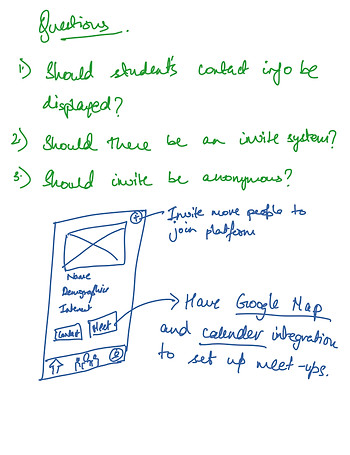 Questions.
1.) Should student's contact info be
displayed?
2.) Should there be an invite system?
3.) Should invite be anonymous?
Invite more people to
join platform
Name
Demographics
Interest
Contact
Meet
Have Google Map
and calender integration
to set up meet-ups.